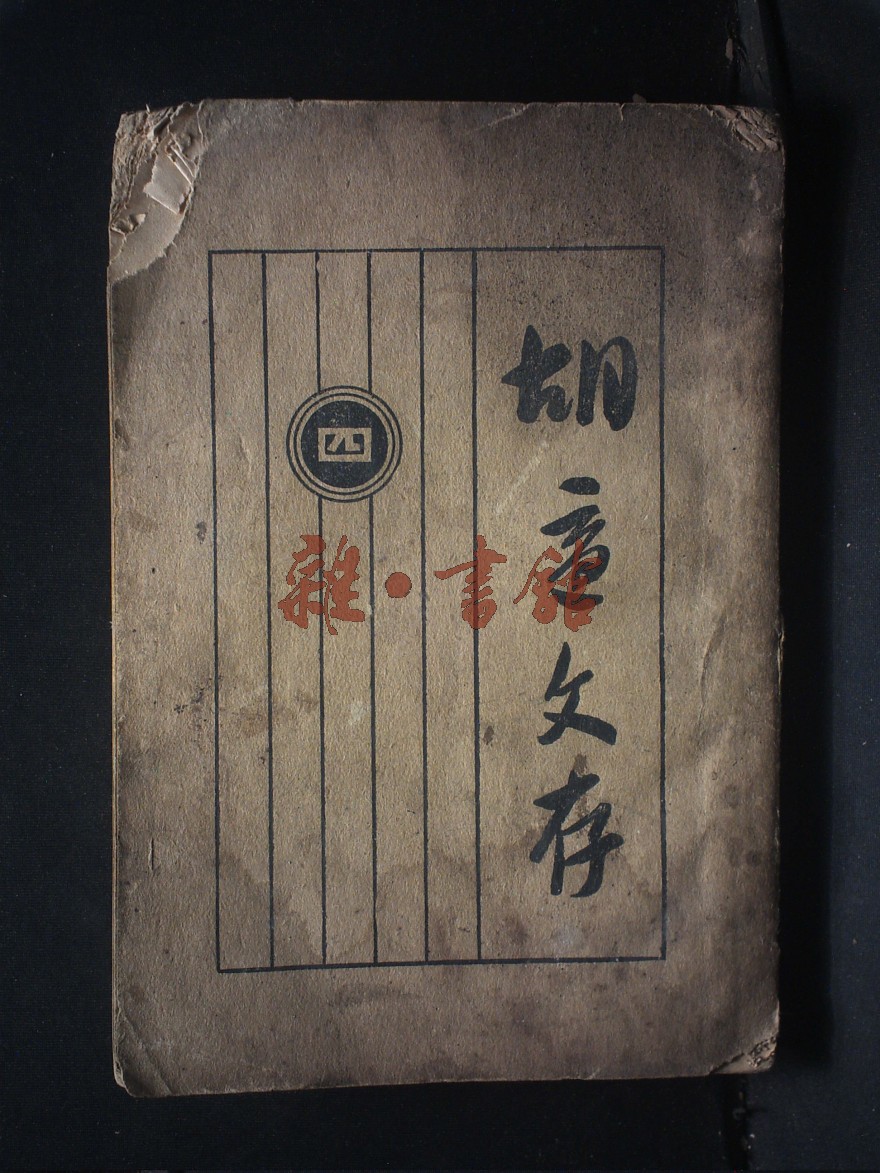 胡適文存
四
雜·書館